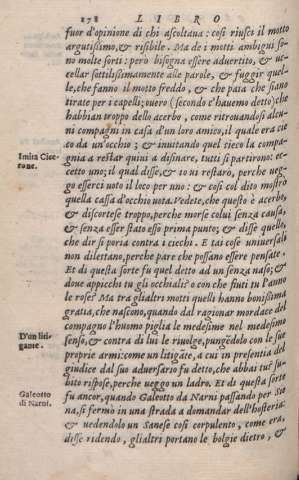 178 LIBRO
fuor d'opinione di chi ascoltaua: cosi riuscì il motto
argutissimo, & risibile. Ma de i motti ambigui so-
no molte sorti: però bisogna essere aduertito, & uc-
cellar sottilissimamente alle parole, & fuggir quel-
le, che fanno il motto freddo, & che paia che siano
tirate per i capelli; ouero (secondo c'hauemo detto) che
habbian troppo dello acerbo, come ritrouandosi alcu-
ni compagni in casa d'un loro amico, il quale era cie
co da un'occhio; & inuitando quel cieco la compa-
Imita Cice-
rone.
gnia a restar quiui a disinare, tutti si partirono: ec-
cetto uno; il qual disse, & io ui restarò, perche ueg-
go esserci uoto il loco per uno: & cosi col dito mostrò
quella cassa d'occhio uota. Vedete, che questo è acerbo,
& discortese troppo, perche morse colui senza causa,
& senza esser stato esso prima punto; & disse quello,
che dir si poria contra i ciechi. E tai cose uniuersali
non dilettano, perche pare che possano essere pensate.
Et di questa sorte fu quel detto ad un senza naso; &
doue appicchi tu gli occhiali? o con che fiuti tu l'anno
le rose? Ma tra gli altri motti quelli hanno bonissima
gratia, che nascono, quando dal ragionar mordace del
compagno l'huomo piglia le medesime nel medesimo
D'un liti-
gante.
senso, & contra di lui le riuolge, pungēdolo con le sue
proprie armi: come un litigāte, a cui in presentia del
giudice dal suo aduersario fu detto, che abbai tu? su-
bito rispose, perche ueggo un ladro. Et di questa sorte
Galeotto
di Narni.
fu ancor, quando Galeotto da Narni passando per Sie
na, si fermò in una strada a domandar dell'hosteria:
& uedendolo un Sanese così corpulento, come era,
disse ridendo, gli altri portano le bolgie dietro, &